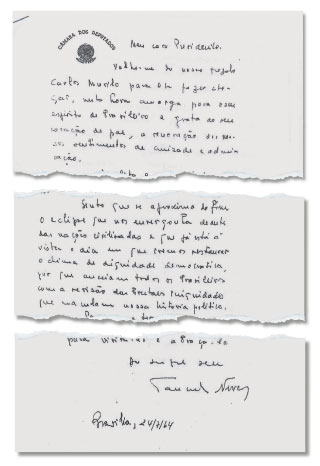 CÂMARA DOS DEPUTADOS
Meu caro Presidente.
Valho-me do nosso prezado
Carlos Murilo para lhe fazer che-
gar, nesta hora amarga para o seu
espírito de brasileiro e grata ao seu
coração de pai, a renovação dos me-
us sentimentos de amizade e admi-
ração.
Sinto que se aproxima do fim
o eclipse que nos envergonha diante
das nações civilizadas e que já está à
vista o dia em que vamos restaurar
o clima de dignidade democrática,
por que anseiam todos os brasileiros
com a revisão das brutais iniquidades
que mancham nossa história política.
para visitá-lo e abraçá-lo
do sempre seu
Tancredo Neves
Brasília, 24/7/64